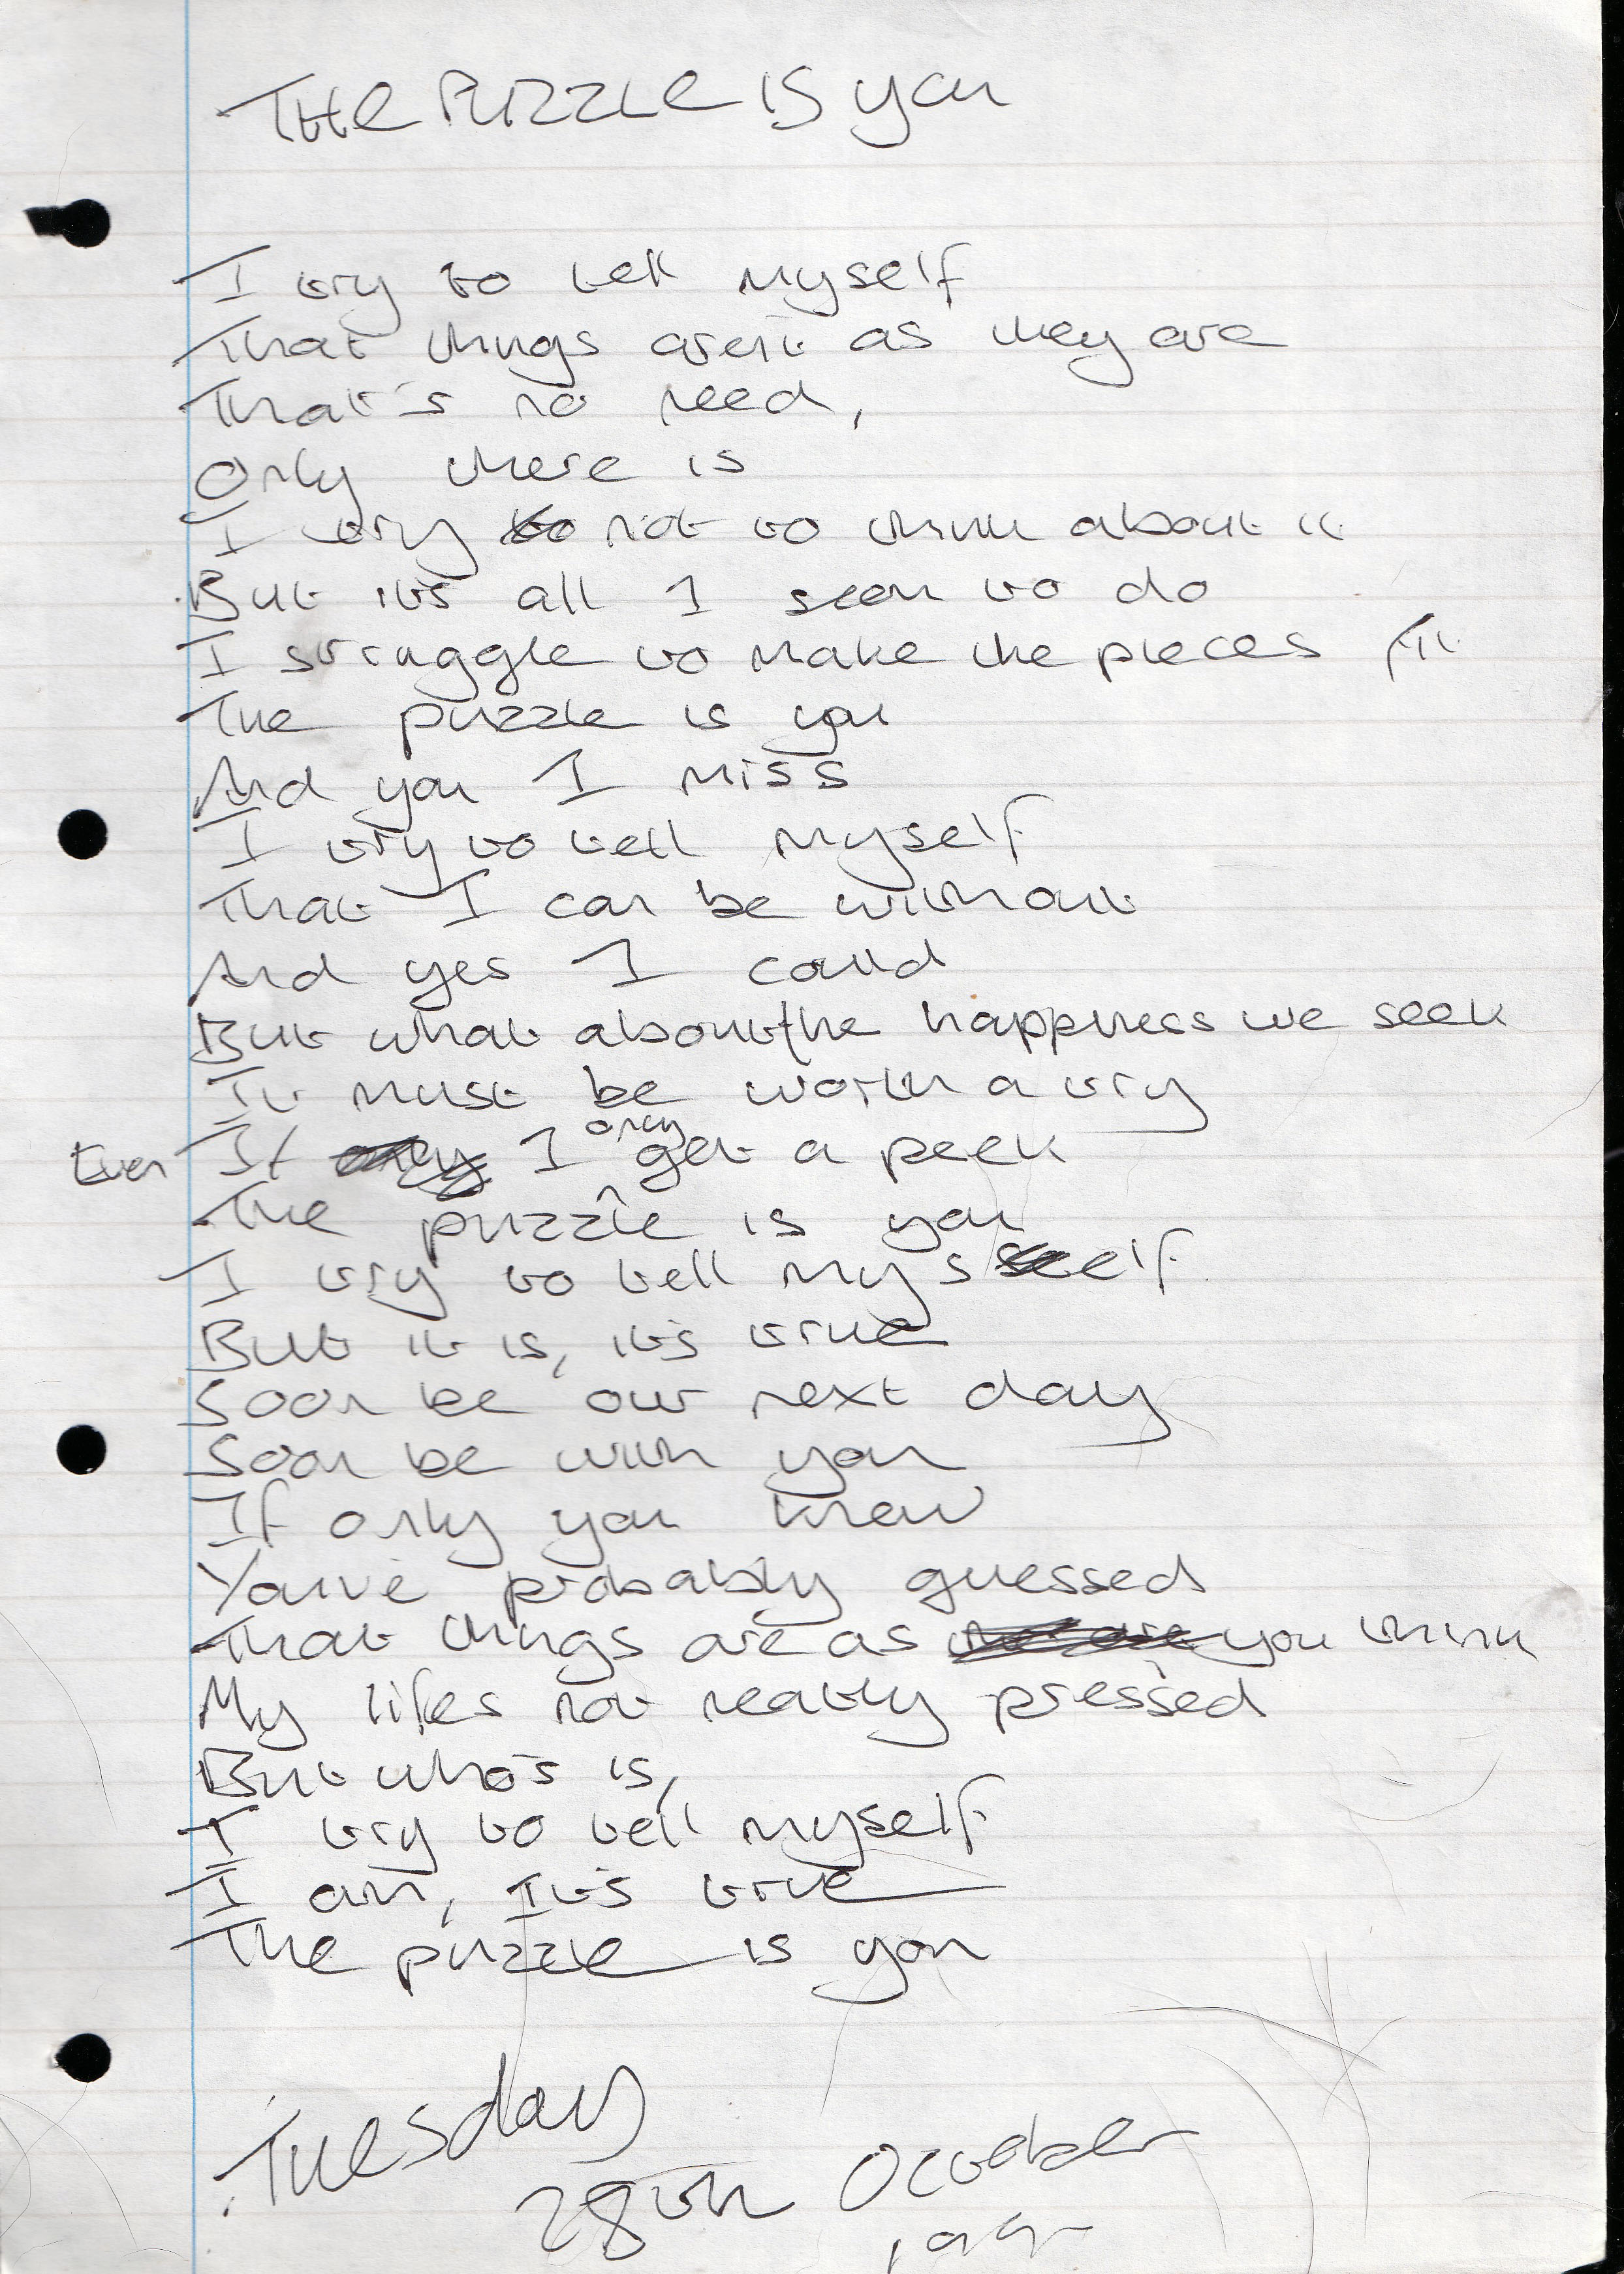 THE PUZZLE IS you
I try to tell myself
That things aren't as they are
That's no need,
Only there is
I try not to think about it
But it's all I seem to do
I struggle to make the pieces fit
The puzzle is you
And you I miss
I try to tell myself
That I can be without
And yes I could
But what about the happiness we seek
It must be worth a try
Even If I only get a peek
The puzzle is you
I try to tell myself
But it is, it's true
Soon be our next day
Soon be with you
If only you knew
You've probably guessed
That things are as you think
My lifes not neatly pressed
But who's is,
I try to tell myself
I am, It's true
The puzzle is you
Tuesday
28th October